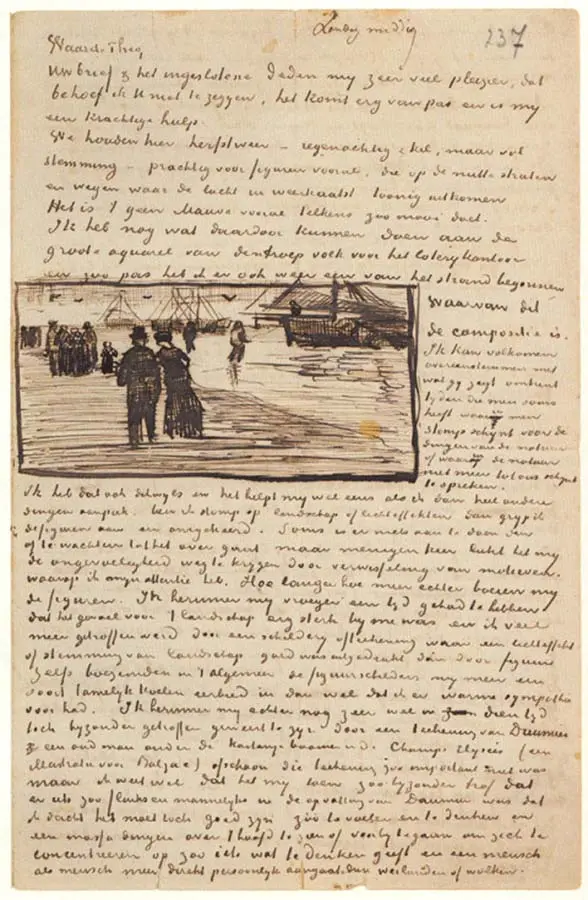 Zondag middag
237
Waarde Theo,
Uw brief & het ingeslotene deden my zeer veel pleizier, dat
behoef ik U niet te zeggen, het komt erg van pas en is my
een krachtige hulp.
We houden hier herfstweer – regenachtig & kil, maar vol
stemming – prachtig voor figuren vooral, die op de natte straten
en wegen waar de lucht in weerkaatst toonig uitkomen
Het is 't geen Mauve vooral telkens zoo mooi doet.
Ik heb nog wat daardoor kunnen doen aan de
groote aquarel van den troep volk voor het loterykantoor
en zoo pas heb ik er ook weer een van het strand begonnen
Waarvan dit
de compositie is.
Ik kan volkomen
overeenstemmen met
wat gy zegt omtrent
tyden die men soms
heeft waarin men
stomp schynt voor de
dingen van de natuur
of waarin de natuur
niet meer tot ons schynt
te spreken.
Ik heb dat ook dikwyls en het helpt my wel eens als ik dan heel andere
dingen aanpak. ben ik stomp op landschap of lichteffekten dan gryp ik
de figuren aan en omgekeerd. Soms is er niets aan te doen dan
af te wachten tot het over gaat maar menigen keer lukt het my
de ongevoeligheid weg te krygen door verwisseling van motieven.
waarop ik myn attentie heb. Hoe langer hoe meer echter boeien my
de figuren. Ik herinner my vroeger een tyd gehad te hebben
dat het gevoel voor 't landschap erg sterk by me was en ik veel
meer getroffen werd door een schildery of teekening waar een lichteffekt
of stemming van landschap goed was uitgedrukt dan door figuur
Zelfs boezemden in 't algemeen de figuurschilders my meer een
soort tamelyk koelen eerbied in dan wel dat ik er warme sympathie
voor had. Ik herinner my echter nog zeer wel in dien tyd
toch byzonder getroffen geweest te zyn door een teekening van Daumier
een oud man onder de kastanjeboomen i.d. Champs Elysées (een
illustratie voor Balzac) ofschoon die teekening zoo important niet was
maar ik weet wel dat het my toen zoo byzonder trof dat
er iets zoo flinks en mannelyks in de opvatting van Daumier was dat
ik dacht het moet toch goed zyn zóó te voelen en te denken en
een massa dingen over 't hoofd te zien of voorby te gaan om zich te
concentreeren op zoo iets wat te denken geeft en een mensch
als mensch meer direkt persoonlyk aangaat dan weilanden of wolken.